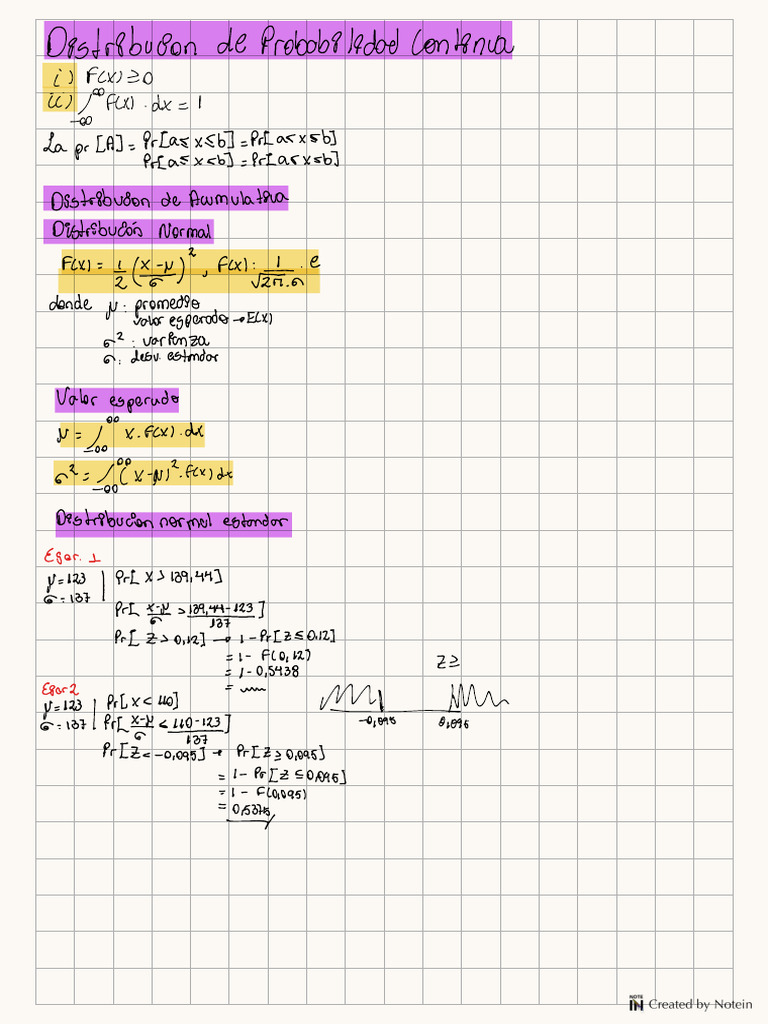 Distribucion de Probabilidad Continua
i) F(x) ≥ 0
ii) ∫ F(x) · dx = 1
∞
-∞
La pr [A] = Pr[a ≤ x ≤ b] = Pr[a < x ≤ b]
Pr[a ≤ x < b] = Pr[a < x < b]
Distribucion de Acumulativa
Distribución Normal
F(x) = 1/2 (x-μ/σ)², F(x): 1/√2π.σ · e
donde μ: promedio
valor esperado → E(x)
σ²: varianza
σ: desv. estandar
Valor esperado
μ = ∫ x · F(x) · dx
∞
-∞
σ² = ∫ (x-μ)² · F(x) dx
∞
-∞
Distribucion normal estandar
Ejer. 1
μ = 123 | Pr[x > 139,44]
σ = 137
Pr[x-μ/σ > 139,44-123/137]
Pr[Z > 0,12] → 1 - Pr[Z ≤ 0,12]
= 1 - F(0,12)
= 1 - 0,5438
=
Z ≥
-0,095 0,095
Ejer 2
μ = 123 | Pr[x < 110]
σ = 137 | Pr[x-μ/σ < 110-123/137]
Pr[Z < -0,095] → Pr[Z ≥ 0,095]
= 1 - Pr[Z ≤ 0,095]
= 1 - F(0,095)
= 0,5375
NOTE IN Created by Notein